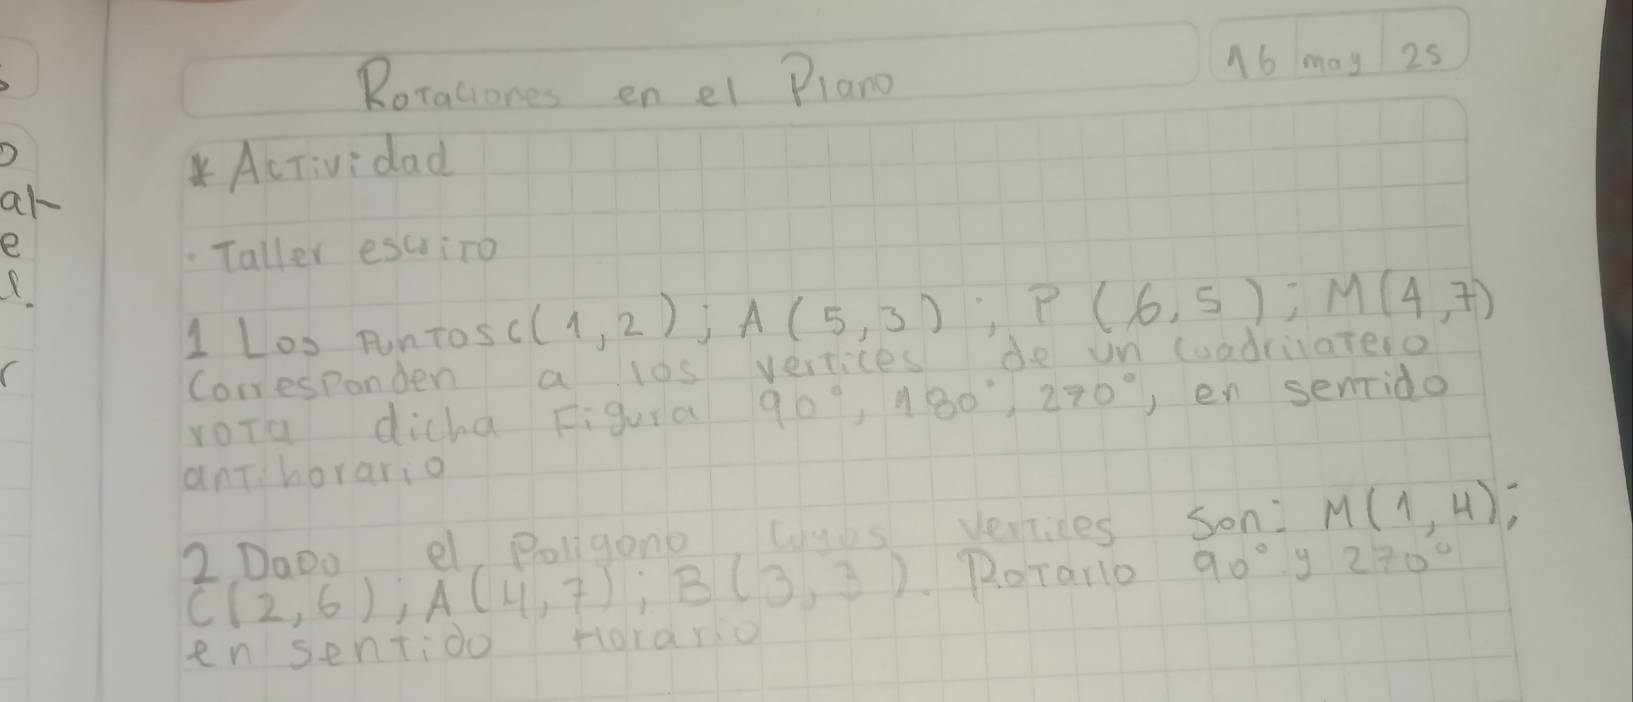 Rotaciones en el Plano
16 may 25
* Actividad
· Taller escrito
1 Los Puntos C(1,2); A(5,3); P(6,5); M(4,7)
Corresponden a los vertices de un cuadrilatero
rota dicha Figura 90°, 180°, 270°, en sentido
antihorario
2 Dado el Poligono cuyos vertices son: M(1,4);
C(2,6); A(4,7); B(3,3). Rotarlo 90° y 270°
en sentido Horario
s
o
ar
e
l.
r